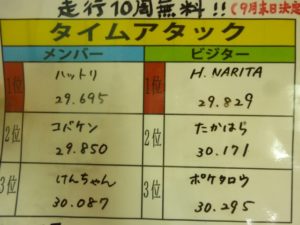 走行10周無料!!(9月末日決定
タイムアタック
メンバー ビジター
1位 ハットリ H.NARITA
29.695 29.829
2位 コバケン たかはら
29.850 30.171
3位 けんちゃん ポケタロウ
30.087 30.295